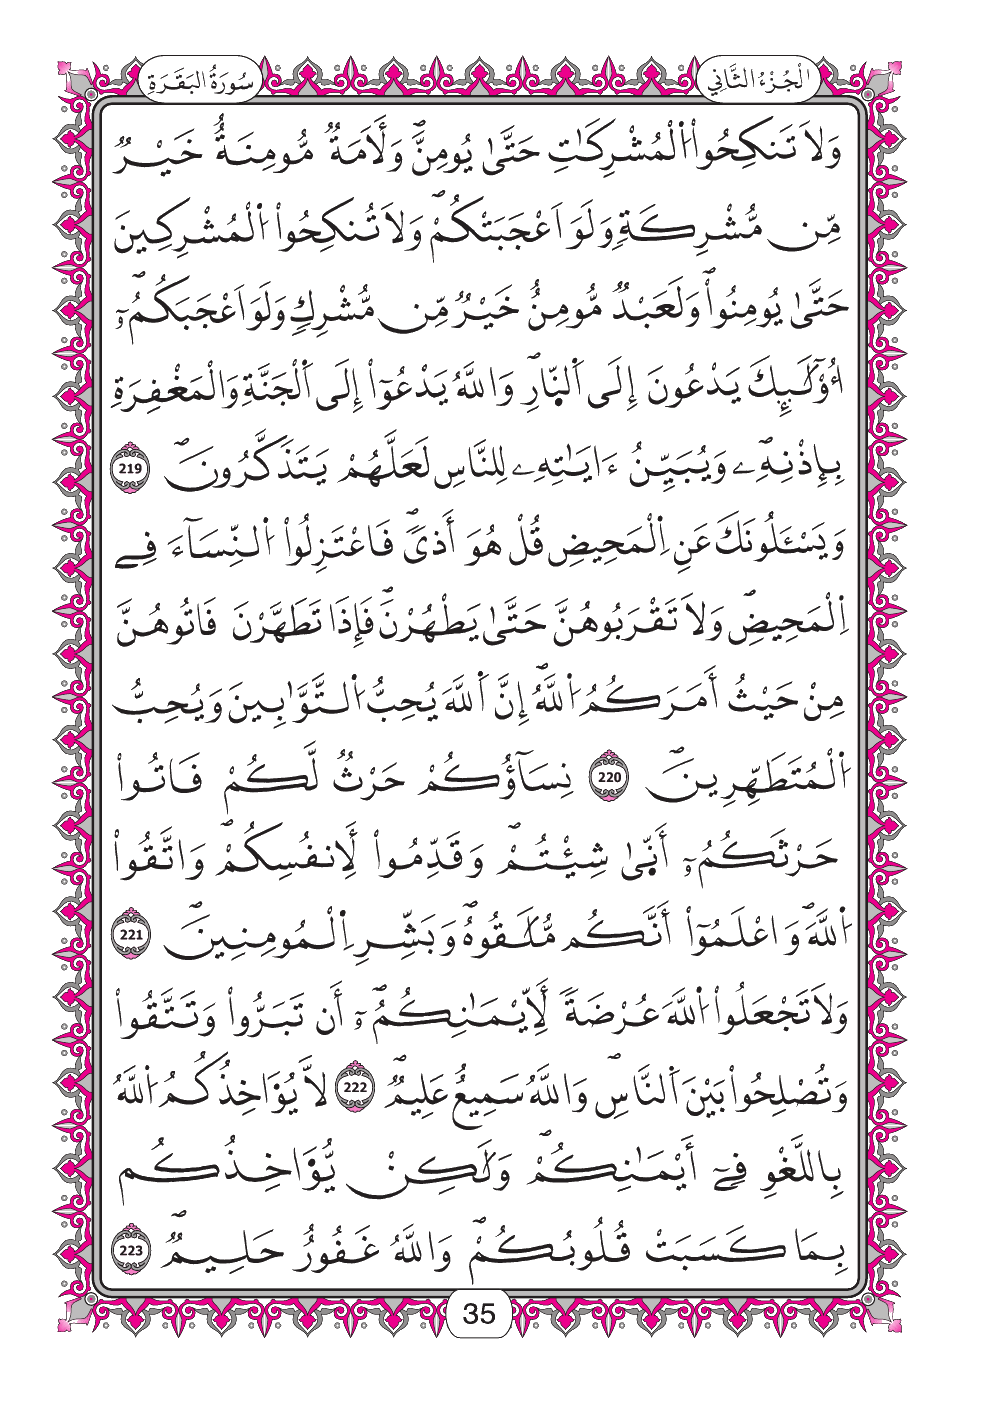 الْجُزْءُ الثَّانِي
سُورَةُ الْبَقَرَةِ
وَلَا تَنكِحُواْ اُ۬لْمُشْرِكَٰتِ حَتَّىٰ يُومِنَّۖ وَلَأَمَةٞ مُّومِنَةٌ خَيْرٞ
مِّن مُّشْرِكَةٖ وَلَوَ اَعْجَبَتْكُمْۖ وَلَا تُنكِحُواْ اُ۬لْمُشْرِكِينَ
حَتَّىٰ يُومِنُواْۖ وَلَعَبْدٞ مُّومِنٌ خَيْرٞ مِّن مُّشْرِكٖ وَلَوَ اَعْجَبَكُمُۥٓۖ
أُوْلَٰٓئِكَ يَدْعُونَ إِلَى اَ۬لنّ۪ارِۖ وَاللَّهُ يَدْعُوٓاْ إِلَى اَ۬لْجَنَّةِ وَالْمَغْفِرَةِ
بِإِذْنِهِۦۖ وَيُبَيِّنُ ءَايَٰتِهِۦ لِلنَّاسِ لَعَلَّهُمْ يَتَذَكَّرُونَۖ 219
وَيَسْـَٔلُونَكَ عَنِ اِ۬لْمَحِيضِ قُلْ هُوَ أَذىٗۖ فَاعْتَزِلُواْ اُ۬لنِّسَآءَ فِے
اِ۬لْمَحِيضِۖ وَلَا تَقْرَبُوهُنَّ حَتَّىٰ يَطْهُرْنَۖ فَإِذَا تَطَهَّرْنَ فَاتُوهُنَّ
مِنْ حَيْثُ أَمَرَكُمُ اُ۬للَّهُۖ إِنَّ اَ۬للَّهَ يُحِبُّ اُ۬لتَّوَّٰبِينَ وَيُحِبُّ
اُ۬لْمُتَطَهِّرِينَۖ 220 نِسَآؤُكُمْ حَرْثٞ لَّكُمْ فَاتُواْ
حَرْثَكُمُۥٓ أَنّ۪ىٰ شِئْتُمْۖ وَقَدِّمُواْ لِأَنفُسِكُمْۖ وَاتَّقُواْ
اُ۬للَّهَۖ وَاعْلَمُوٓاْ أَنَّكُم مُّلَٰقُوهُۖ وَبَشِّرِ اِ۬لْمُومِنِينَۖ 221
وَلَا تَجْعَلُواْ اُ۬للَّهَ عُرْضَةٗ لِّأَيْمَٰنِكُمُۥٓۖ أَن تَبَرُّواْ وَتَتَّقُواْ
وَتُصْلِحُواْ بَيْنَ اَ۬لنَّاسِۖ وَاللَّهُ سَمِيعٌ عَلِيمٞۖ 222 لَّا يُؤَاخِذُكُمُ اُ۬للَّهُ
بِاللَّغْوِ فِےٓ أَيْمَٰنِكُمْۖ وَلَٰكِنْ يُّؤَاخِذُكُم
بِمَا كَسَبَتْ قُلُوبُكُمْۖ وَاللَّهُ غَفُورٌ حَلِيمٞۖ 223
35